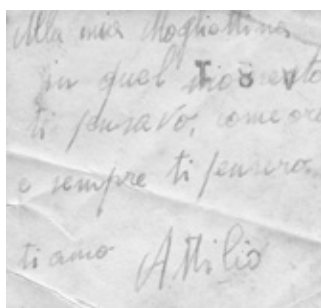 Alla mia Mogliettina
in quel momento
ti pensavo, come ora
e sempre ti penserò
ti amo Attilio